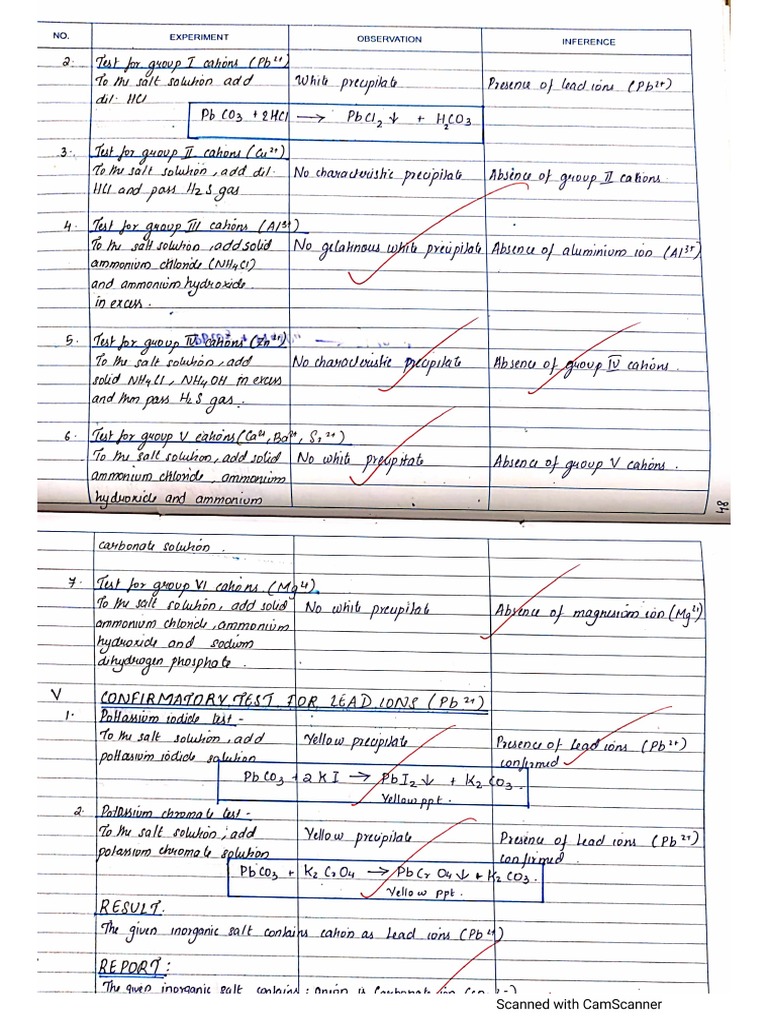 NO. EXPERIMENT OBSERVATION INFERENCE
2. Test for group I cations (Pb²⁺)
To the salt solution add White precipitate Presence of lead ions (Pb²⁺)
dil. HCl
PbCO₃ + 2HCl → PbCl₂↓ + H₂CO₃
3. Test for group II cations (Cu²⁺)
To the salt solution, add dil. No characteristic precipitate Absence of group II cations.
HCl and pass H₂S gas
4. Test for group III cations (Al³⁺)
To the salt solution, add solid No gelatinous white precipitate Absence of aluminium ion (Al³⁺)
ammonium chloride (NH₄Cl)
and ammonium hydroxide
in excess.
5. Test for group IV cations (Zn²⁺)
To the salt solution, add No characteristic precipitate Absence of group IV cations.
solid NH₄Cl, NH₄OH in excess
and then pass H₂S gas.
6. Test for group V cations (Ca²⁺, Ba²⁺, Sr²⁺)
To the salt solution, add solid No white precipitate Absence of group V cations.
ammonium chloride, ammonium
hydroxide and ammonium
48
carbonate solution.
7. Test for group VI cations. (Mg²⁺)
To the salt solution, add solid No white precipitate Absence of magnesium ion (Mg²⁺)
ammonium chloride, ammonium
hydroxide and sodium
dihydrogen phosphate.
V CONFIRMATORY TEST FOR LEAD IONS (Pb²⁺)
1. Pottassium iodide test -
To the salt solution, add Yellow precipitate Presence of lead ions (Pb²⁺)
pottasium iodide solution confirmed
PbCO₃ + 2KI → PbI₂↓ + K₂CO₃.
Yellow ppt.
2. Potassium chromate test -
To the salt solution, add Yellow precipitate Presence of Lead ions (Pb²⁺)
potassium chromate solution confirmed.
PbCO₃ + K₂CrO₄ → PbCrO₄↓ + K₂CO₃.
Yellow ppt.
RESULT.
The given inorganic salt contains cation as Lead ions (Pb²⁺)
REPORT:
The given inorganic salt contains: Anion is Carbonate ion
Scanned with CamScanner